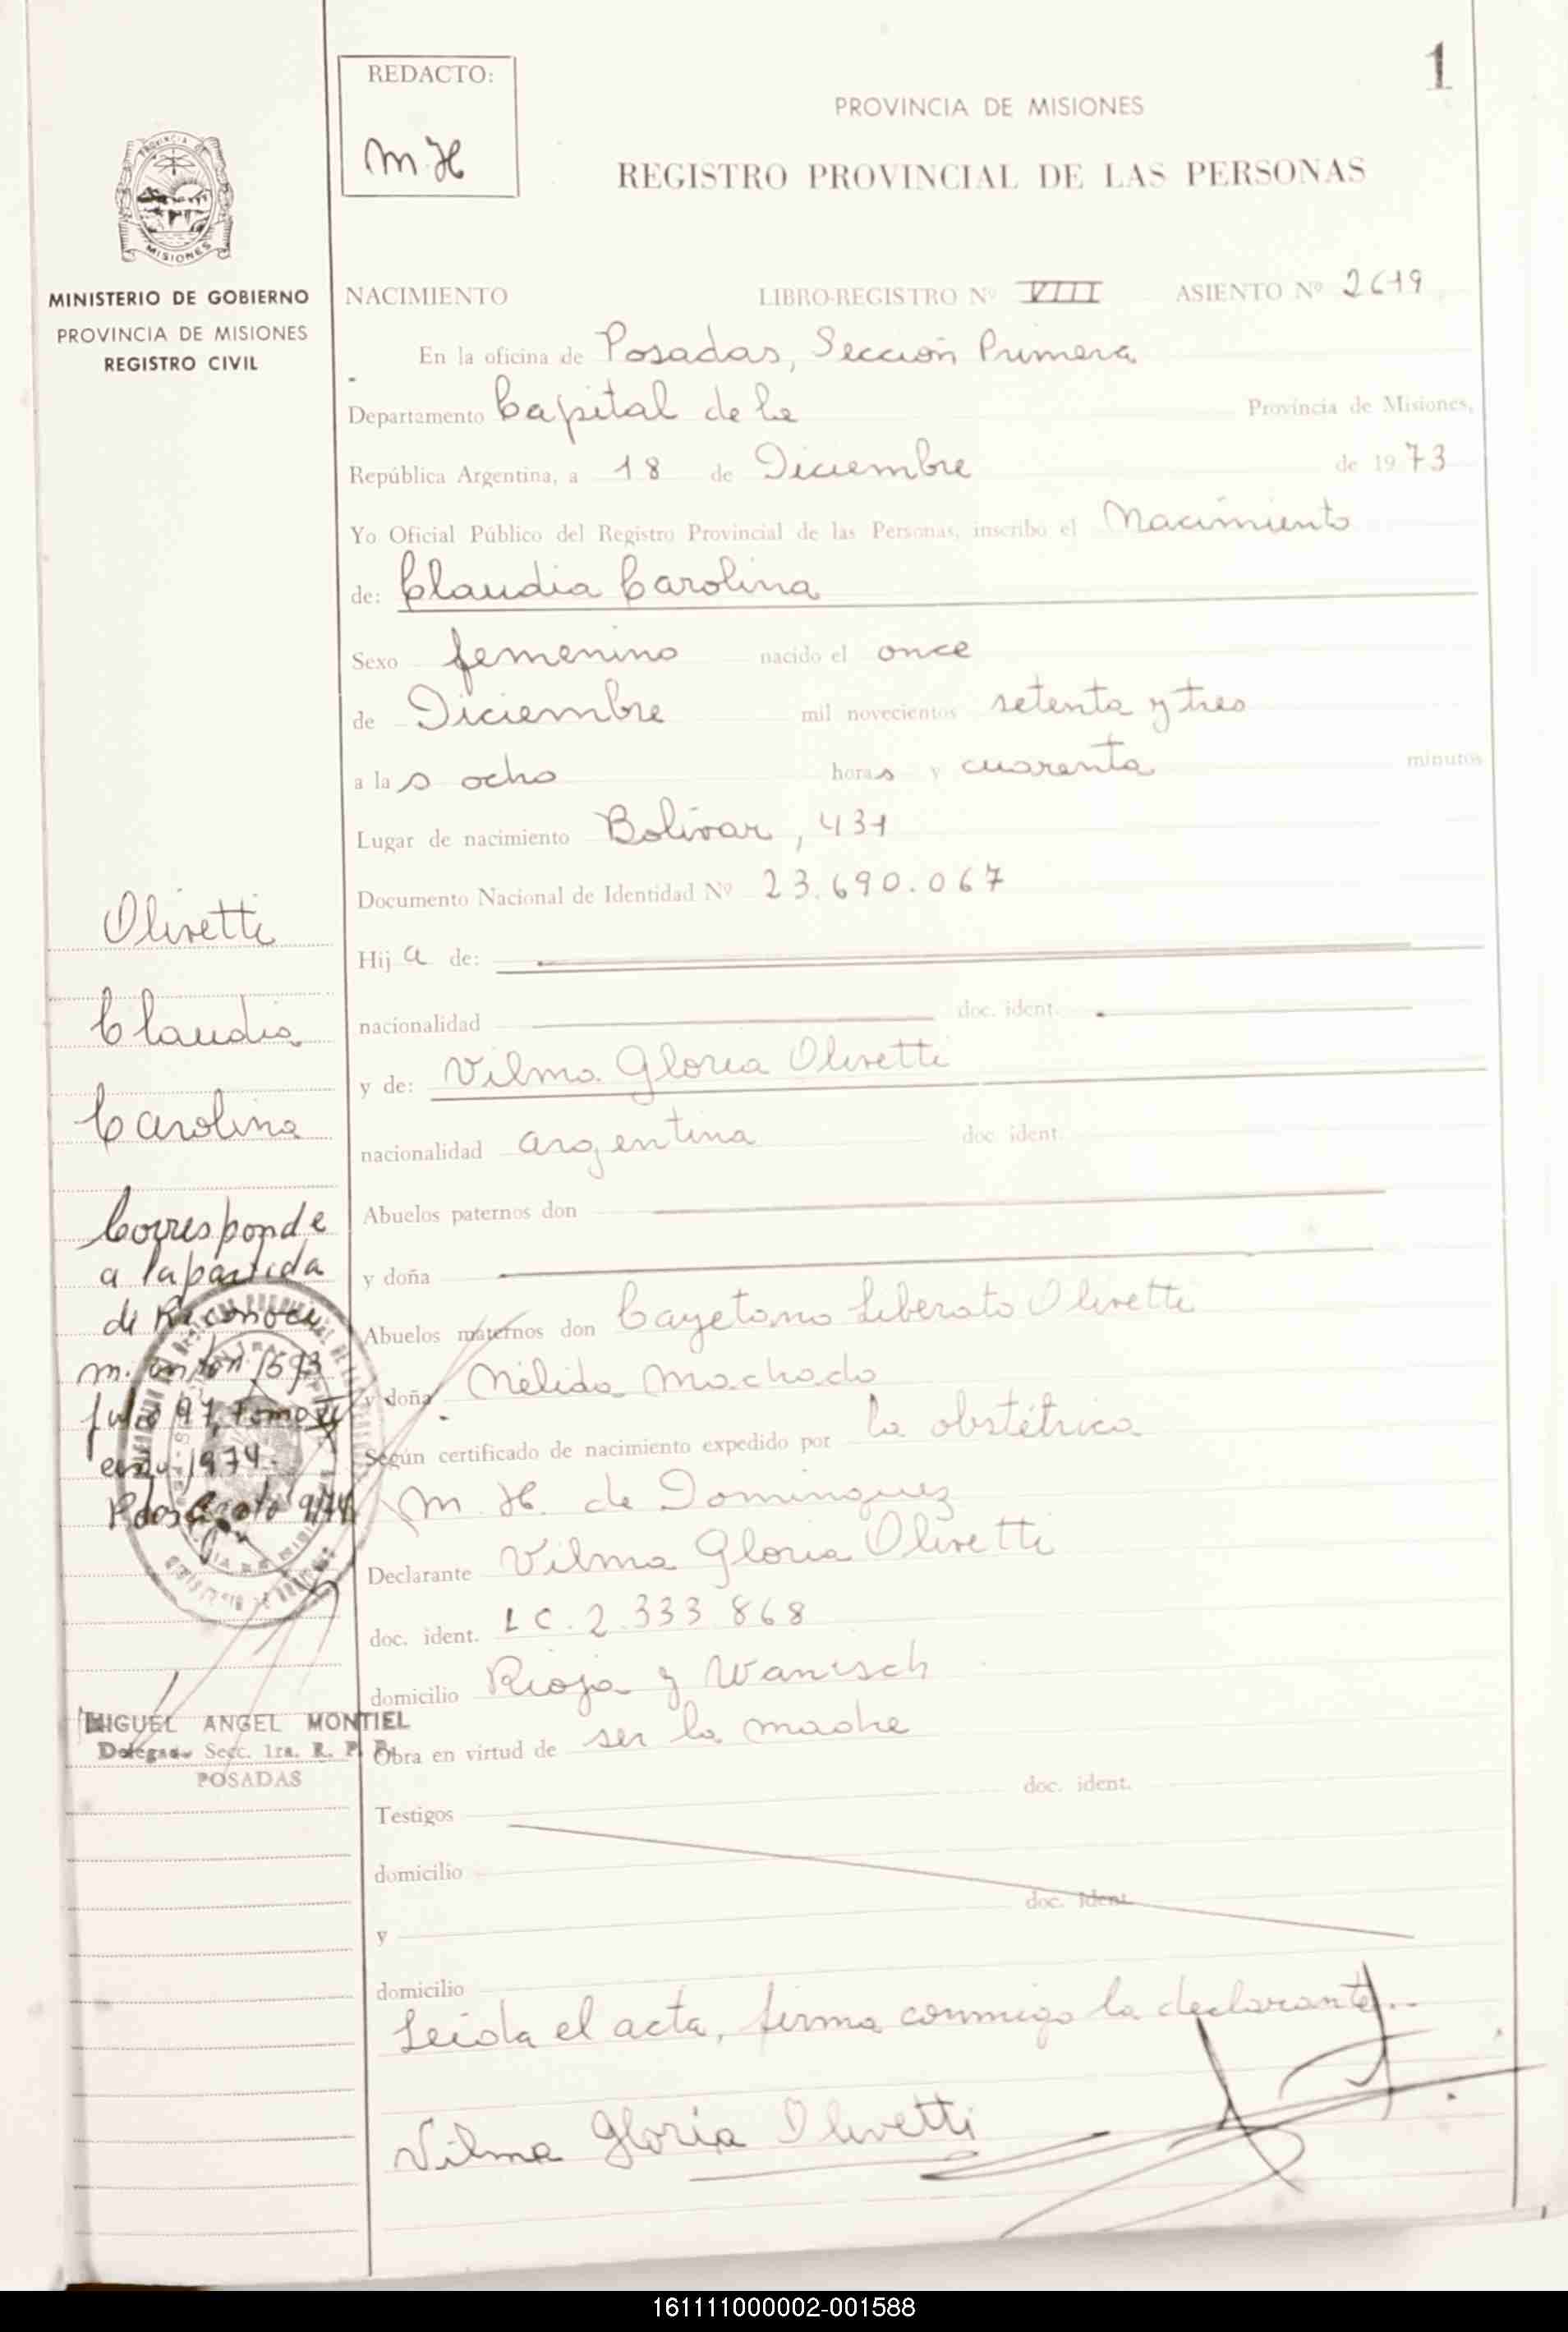 1
REDACTO:
M. H
PROVINCIA DE MISIONES
REGISTRO PROVINCIAL DE LAS PERSONAS
PROVINCIA DE
MISIONES
MINISTERIO DE GOBIERNO
PROVINCIA DE MISIONES
REGISTRO CIVIL
NACIMIENTO LIBRO-REGISTRO Nº VIII ASIENTO Nº 2619
En la oficina de Posadas, Sección Primera
Departamento Capital de la Provincia de Misiones,
República Argentina, a 18 de Diciembre de 1973
Yo Oficial Público del Registro Provincial de las Personas, inscribo el Nacimiento
de: Claudia Carolina
Sexo femenino nacido el once
de Diciembre mil novecientos setenta y tres
a las ocho horas y cuarenta minutos
Lugar de nacimiento Bolívar, 431
Documento Nacional de Identidad Nº 23.690.067
Hija de:
nacionalidad doc. ident.
y de: Vilma Gloria Olivetti
nacionalidad argentina doc. ident.
Abuelos paternos don
y doña
Abuelos maternos don Cayetano Liberato Olivetti
y doña Nélida Machado
Según certificado de nacimiento expedido por la obstétrica
M. H. de Dominguez
Declarante Vilma Gloria Olivetti
doc. ident. LC. 2.333.868
domicilio Rioja y Wanisch
Obra en virtud de ser la madre
Testigos doc. ident.
domicilio
y doc. ident.
domicilio
Leída el acta, firma conmigo la declarante.-
Vilma Gloria Olivetti
Olivetti
Claudia
Carolina
Corresponde
a la partida
de Reconoci
m.
Tomo
1974.
MIGUEL ANGEL MONTIEL
Delegado Secc. 1ra. R. P. P.
POSADAS
161111000002-001588